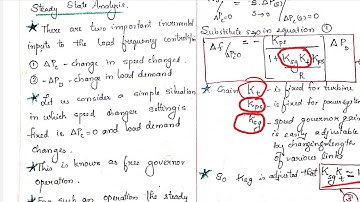 Steady State Analysis.
★ There are two important incremental
inputs to the load frequency control
① ΔPc - change in speed changer.
② ΔPD - change in load demand
★ Let us consider a simple situation
in which speed changer setting is
fixed ie ΔPc = 0 and load demand
changes.
★ This is known as free governor
operation.
★ For such an operation the steady
ΔPc=0 S→0 ΔPc=0
Substitute Sg0 in equation ①
Δf | ΔPc=0 = - Kps / 1 + Ksg Kt Kps / R ΔP
★ Gain Kt - is fixed for turbine
Kps - is fixed for power system
Ksg - speed governor gain
is easily adjustable
by changing length
of various links
★ So Ksg is adjusted that Ksg Kt ≈ 1
③